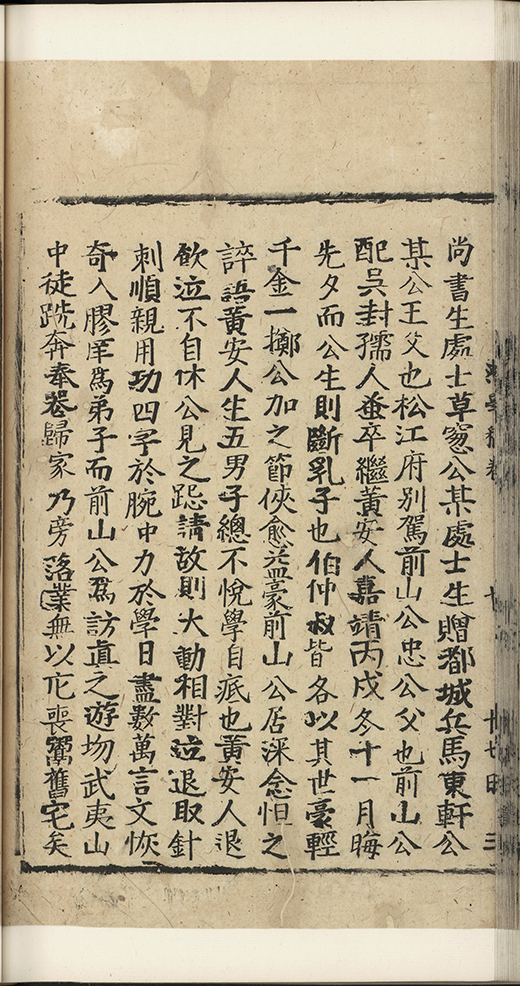 尚書生處士草窓公某處士生贈都城兵馬東軒公
某公王父也松江府別駕前山公忠公父也前山公
配吳封孺人蚤卒繼黃安人嘉靖丙戌冬十一月晦
先夕而公生則斷乳子也伯仲叔皆各以其世豪輕
千金一擲公加之節俠愈益豪前山公居深念怛之
誶語黃安人生五男子總不悅學自疷也黃安人退
飲泣不自休公見之跽請故則大動相對泣退取針
刺順親用功四字於腕中力於學日盡數萬言文恢
奇入膠庠為弟子而前山公為訪直之遊歾武夷山
中徒跣奔奉卷歸家乃旁落業無以庀喪鬻舊宅矣